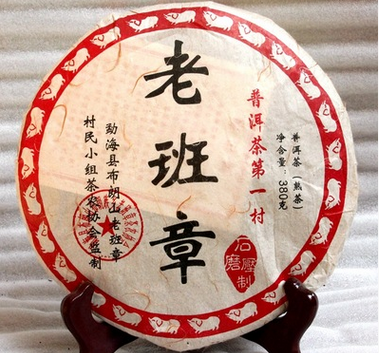 老班章
普洱茶第一村
普洱茶（熟茶）
净含量：380克
勐海县布朗山老班章
村民小组茶农协会监制
石磨压制